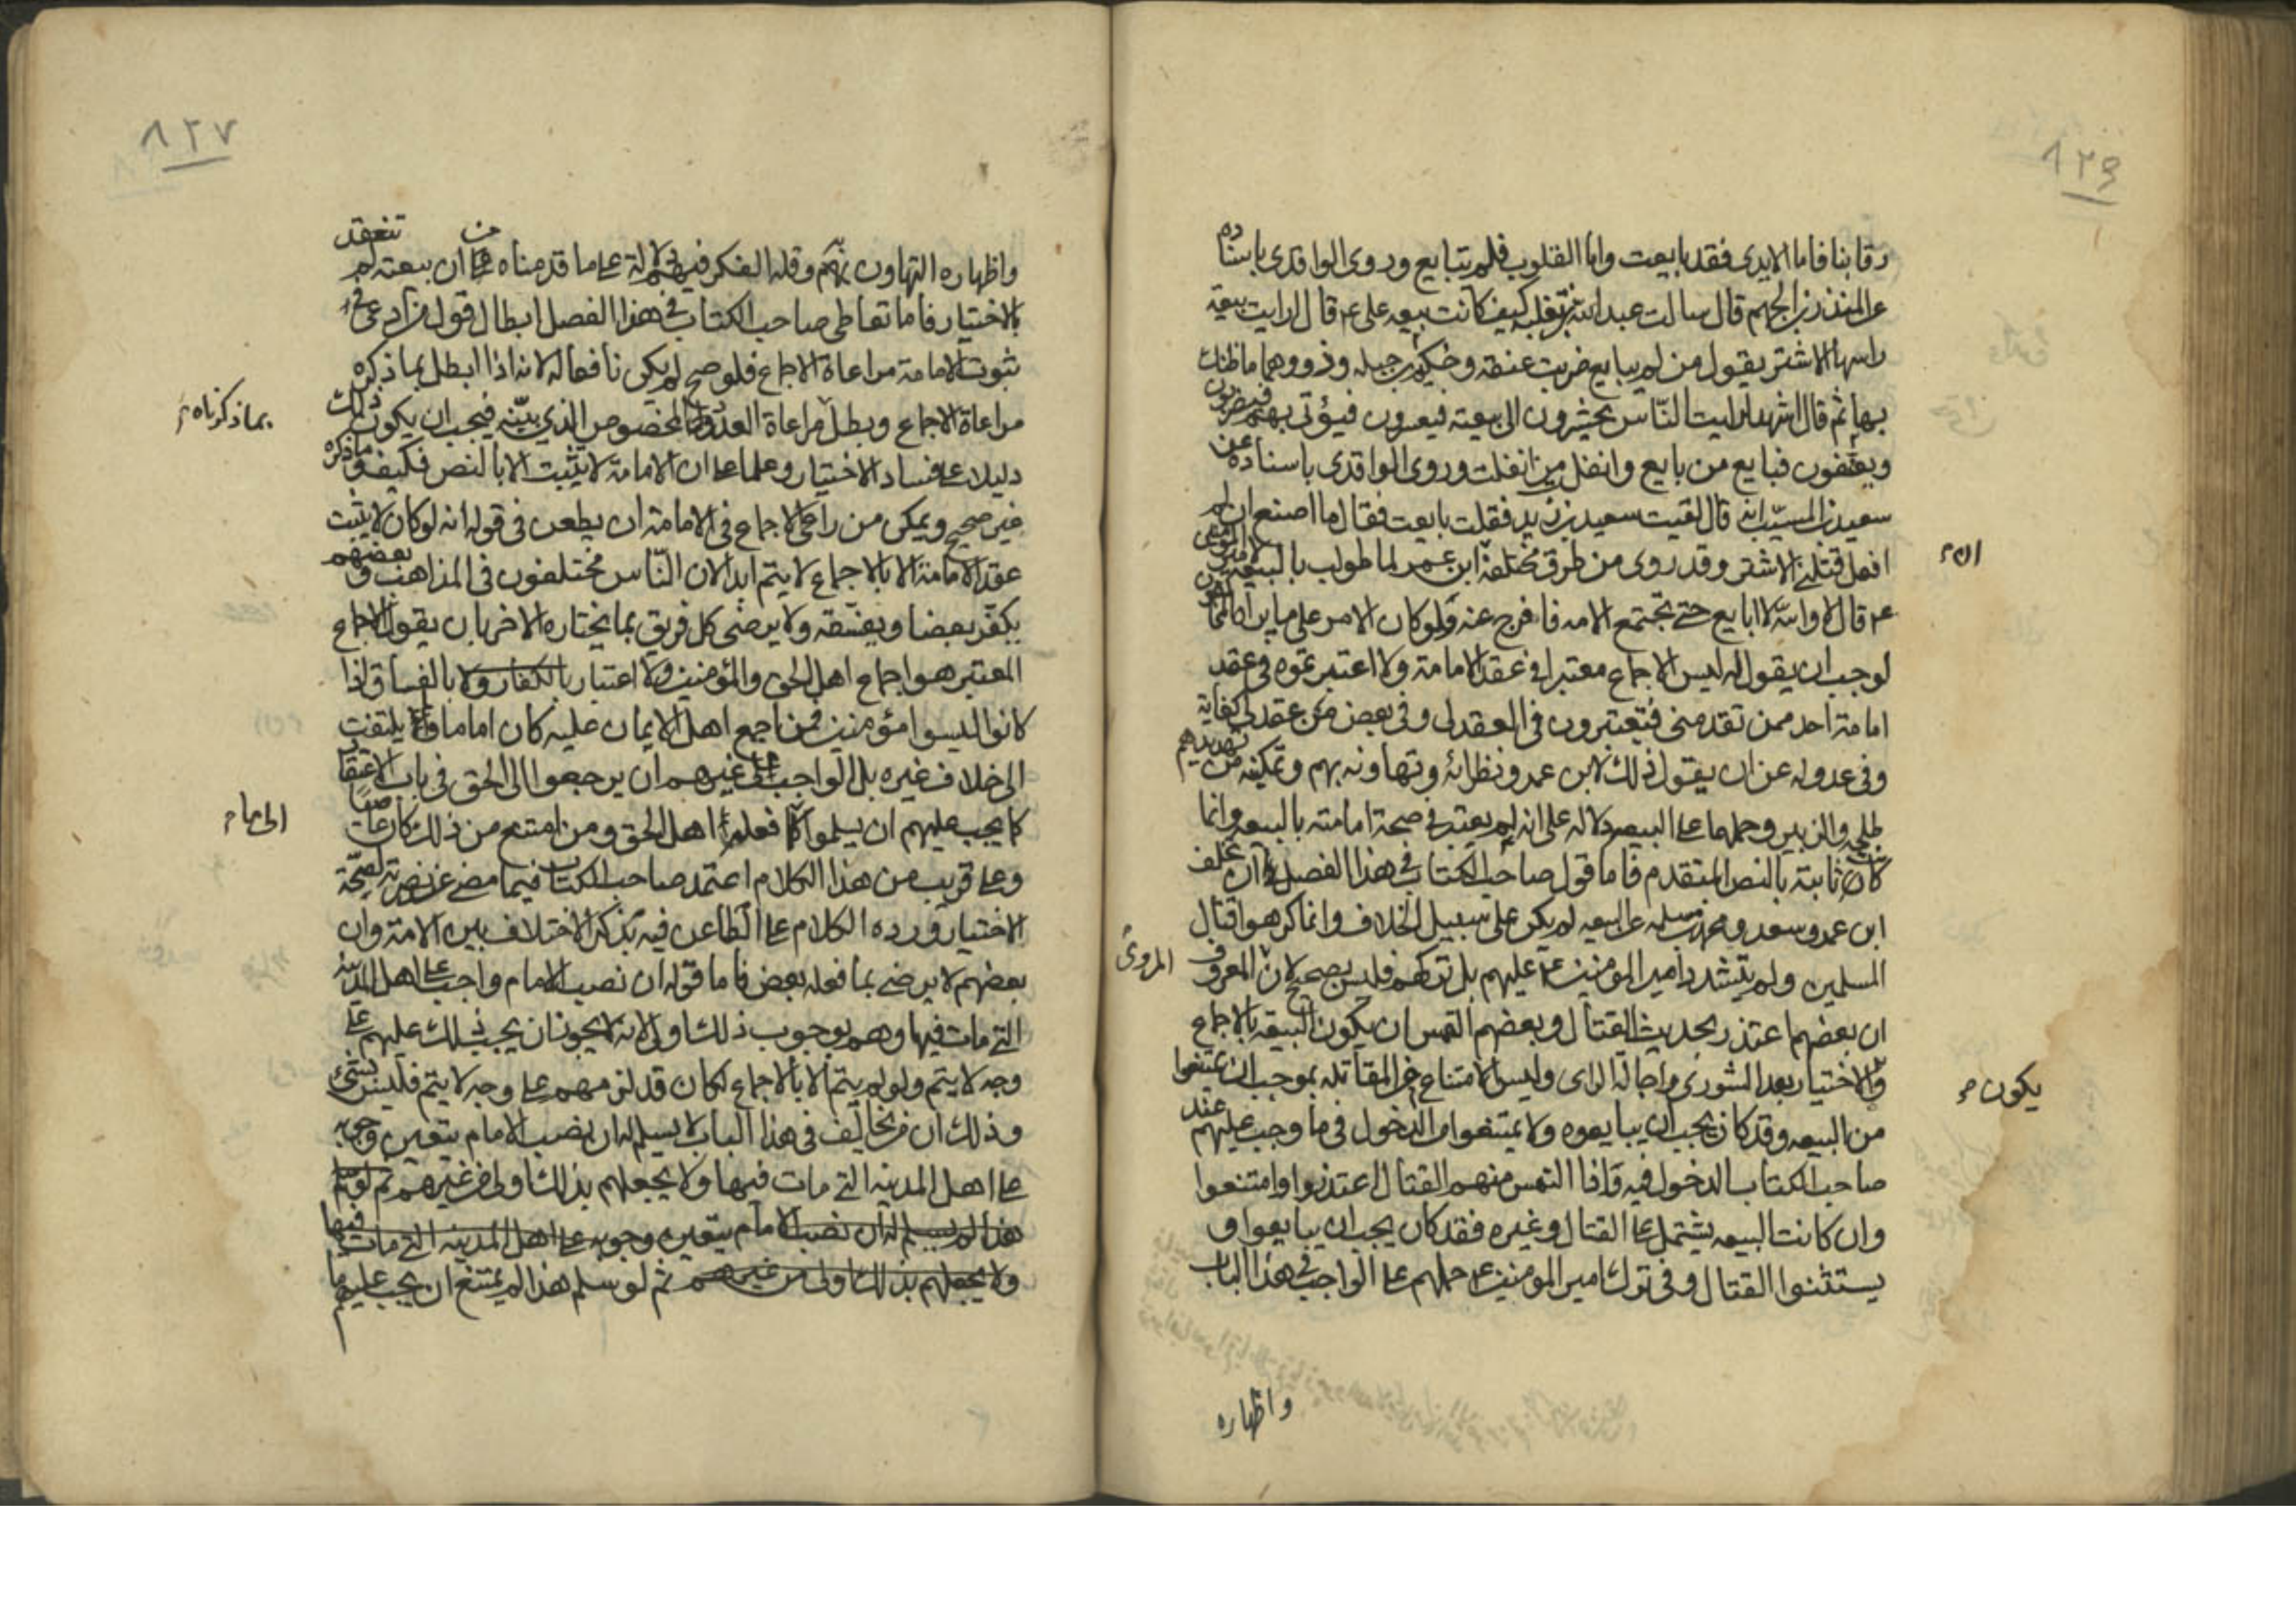 ٨٢٦
رقابنا فاما الايدى فقد بايعت واما القلوب فلم تبايع وروى الواقدى باسناده
عن المنذر بن الجهم قال سالت عبد الله بن ثعلبه كيف كانت بيعه على ع قال رايت بيعة
راسها الاشتر يقول من لم يبايع ضربت عنقه وحكيم بن جبله وذووهما ما ظنك
بها ثم قال اشهد لرايت الناس يحشرون الى بيعته فيؤتى بهم فيضربون
ويعسفون فبايع من بايع وانفلت من انفلت وروى الواقدى باسناده عن
سعيد بن المسيب انه قال لقيت سعيد بن زيد فقلت بايعت فقال ما اصنع ان لم
افعل قتلنى الاشتر وقد روى من طرق مختلفة ان ابن عمر لما طولب بالبيعة
ع قال لا والله لا ابايع حتى تجتمع الامه فافرج عنه ولو كان الامر على ما
لوجب ان يقول له ليس الاجماع معتبرا فى عقد الامامة ولا اعتبرتموه فى عقد
امامة احد ممن تقدمنى فتعتبرون فى العقد لى وفى بعض من عقد لى كفاية
وفى عدوله عن ان يقول ذلك لابن عمر ونظرائه وتهاونه بهم وتمكينه من تهديدهم
طلحه والزبير وحملهما على البيعه دلاله على انه لم يعتبر فى صحة امامته بالبيعه وانما
كان ثابتة بالنص المتقدم فاما قول صاحب الكتاب فى هذا الفصل ان تخلف
ابن عمر وسعد ومحمد بن مسلمه عن البيعه لم يكن على سبيل الخلاف وانما كرهوا قتال
المسلمين ولم يتشدد امير المومنين ع عليهم بل تركهم فليس بصحيح لان المعروف
المروى
ان بعضهم اعتذر بحديث القتال وبعضهم التمس ان يكون البيعة بالاجماع
والاختيار بعد الشورى واجالة الراى وليس الامتناع من المقاتله بموجب ان يمتنعوا
يكون
من البيعه وقد كان يجب ان يبايعوه ولا يمتنعوا من الدخول فى ما وجب عليهم عند
صاحب الكتاب الدخول فيه فاذا التمس منهم القتال اعتذروا وامتنعوا
وان كانت البيعه يشتمل على القتال وغيره فقد كان يجب ان يبايعوا و
يستثنوا القتال وفى ترك امير المومنين ع حملهم على الواجب فى هذا الباب
واظهاره
٨٢٧
واظهاره التهاون بهم وقلة الفكر فيهم دلالة على ما قدمناه من ان بيعته لم تنعقد
بالاختيار فاما تعاطى صاحب الكتاب فى هذا الفصل ابطال قول من ادعى فى
ثبوت الامامة مراعاة الاجماع فلو صح لم يكن نافعا له لانه اذا ابطل بما ذكره
مراعاة الاجماع وبطل مراعاة العدد المخصوص الذى بينه فيجب ان يكون ذلك
بما ذكرناه
دليلا على فساد الاختيار وعلما على ان الامامة لا يثبت الا بالنص فكيف وما ذكره
غير صحيح ويمكن من راعى الاجماع فى الامامة ان يطعن فى قوله انه لو كان لا يثبت
عقد الامامة الا بالاجماع لا يتم ابدا لان الناس مختلفون فى المذاهب وبعضهم
يكفر بعضا ويفسقه ولا يرضى كل فريق بما يختاره الاخر بان يقول الاجماع
المعتبر هو اجماع اهل الحق والمؤمنين ولا اعتبار بالكفار ولا بالفساق اذا
كانوا ليسوا مؤمنين فمن اجمع اهل الايمان عليه كان اماما ولا يلتفت
الى خلاف غيره بل الواجب على غيرهم ان يرجعوا الى الحق فى باب الاعتقاد
كما يجب عليهم ان يسلموا فعلم اهل الحق ومن امتنع من ذلك كان عاصيا
الى ما
وعلى قريب من هذا الكلام اعتمد صاحب الكتاب فيما مضى عن نصرته لصحة
الاختيار ورده الكلام على الطاعن فيه بذكر الاختلاف بين الامة وان
بعضهم لا يرضى بما فعله بعض فاما قوله ان نصب الامام واجب على اهل المدينة
التى مات فيها وهم بوجوب ذلك اولى لانه لا يجوز ان يجب ذلك عليهم على
وجه لا يتم ولو لم يتم الا بالاجماع لكان قد لزمهم على وجه لا يتم فليس بشىء
وذلك ان من يخالف فى هذا الباب لا يسلم له ان نصب الامام يتعين وجوبه
على اهل المدينه التى مات فيها ولا يجعلهم بذلك اولى من غيرهم ثم لو سلم
هذا لم يسلم له ان نصب الامام يتعين وجوبه على اهل المدينه التى مات فيها
ولا يجعلهم بذلك اولى من غيرهم ثم لو سلم هذا لم يمتنع ان يجب عليهم ما